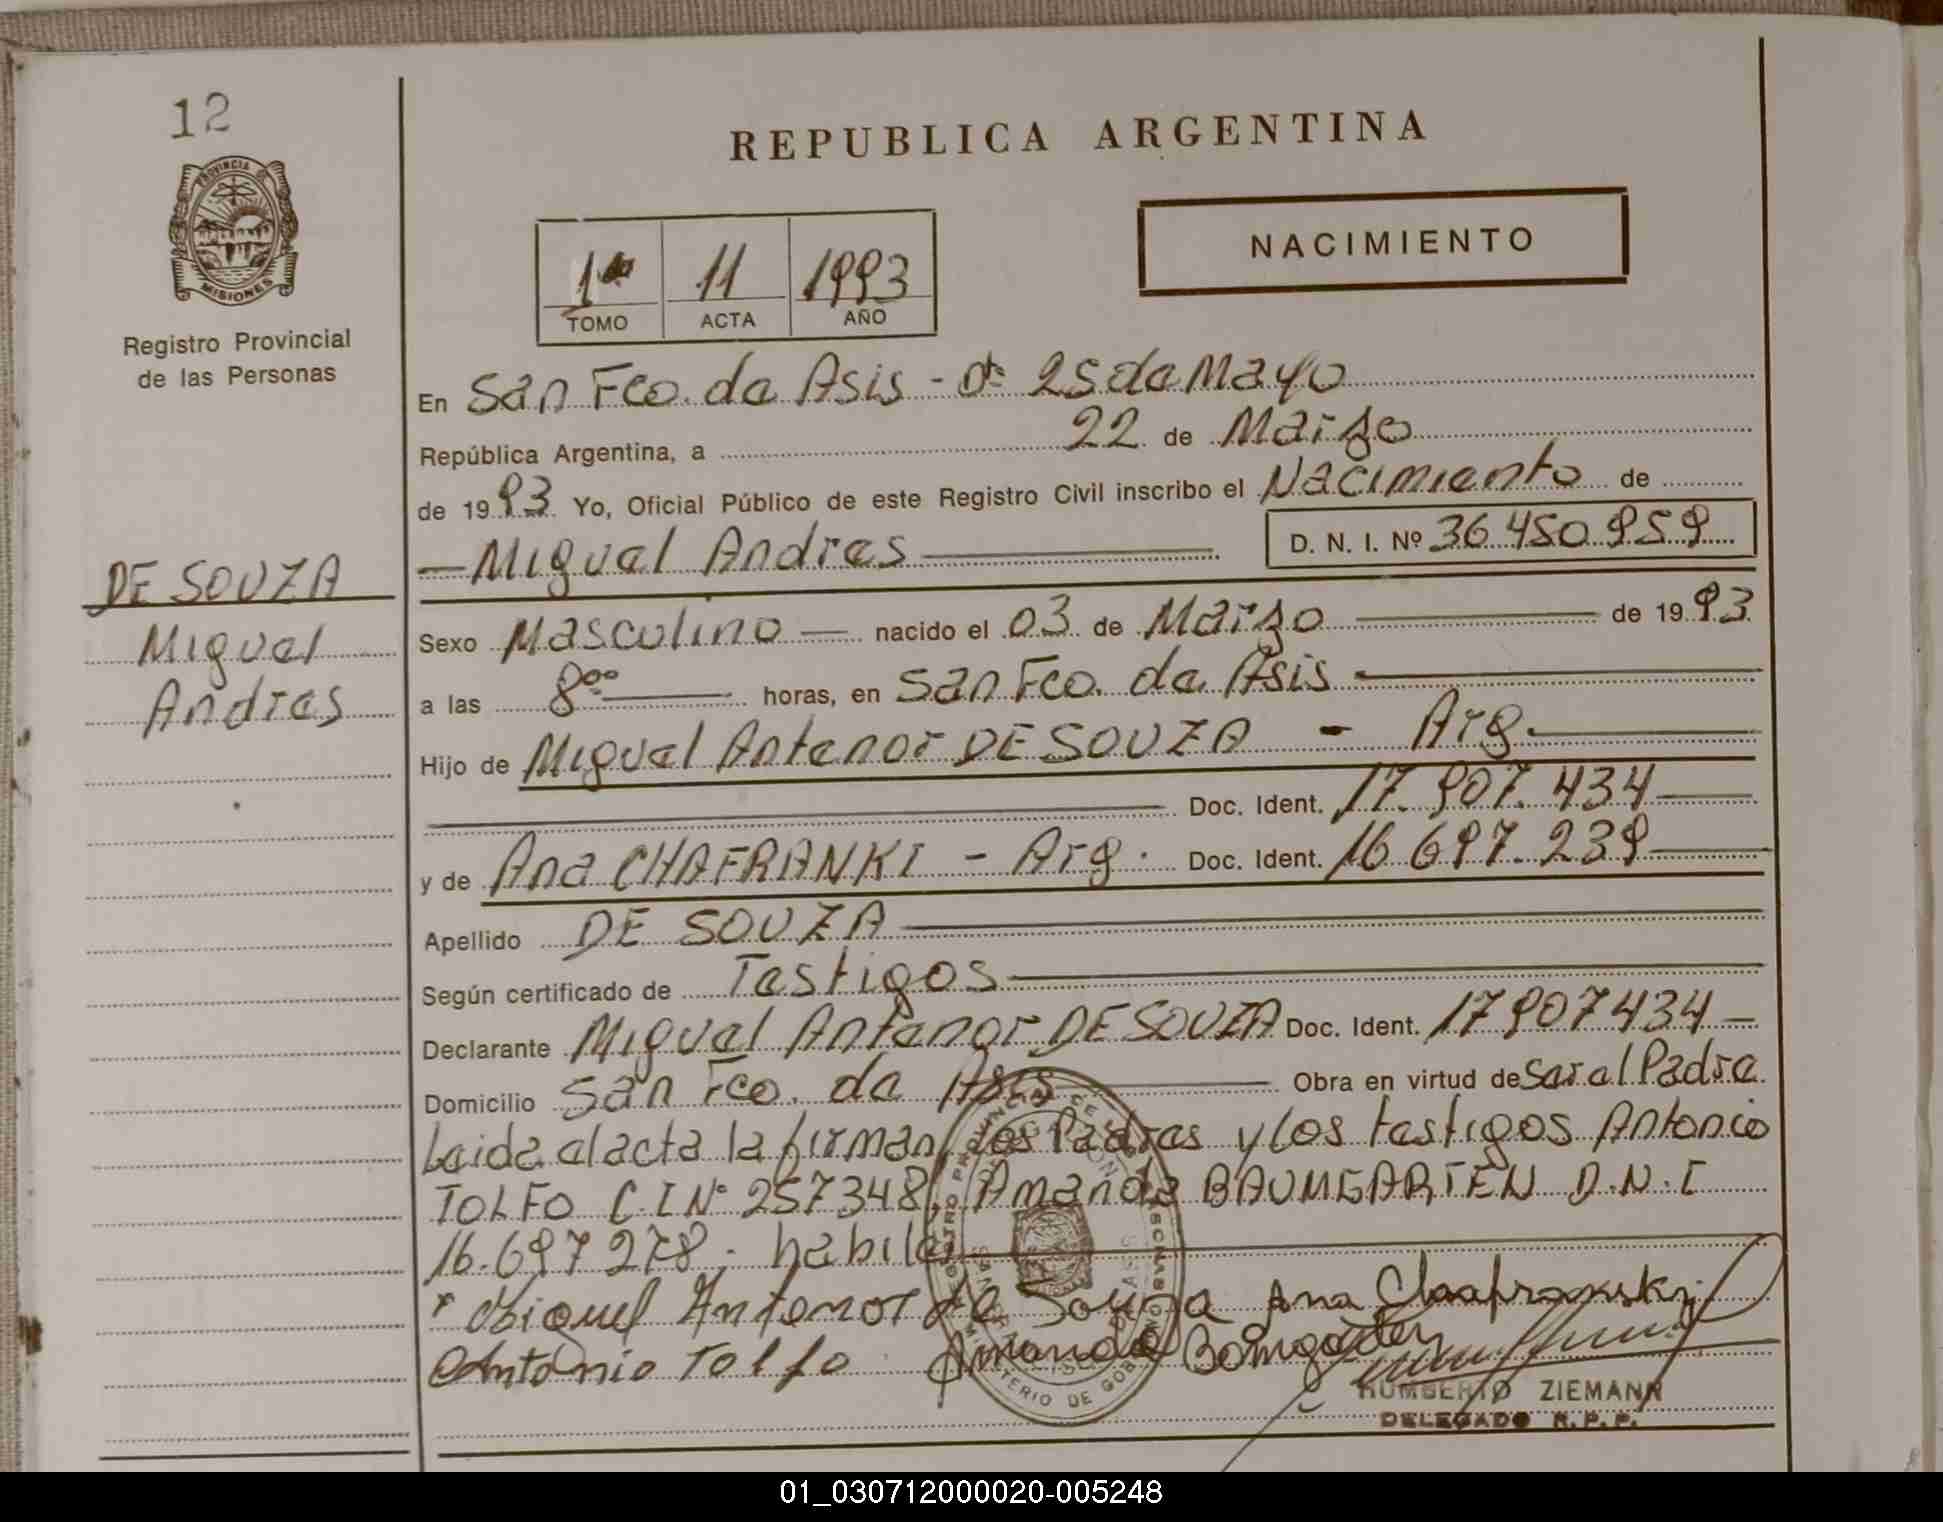 12
PROVINCIA D
MISIONES
Registro Provincial
de las Personas
REPUBLICA ARGENTINA
NACIMIENTO
1º 11 1993
TOMO ACTA AÑO
En San Fco. de Asis - Dto 25 de Mayo
República Argentina, a 22 de Marzo
de 1993 Yo, Oficial Público de este Registro Civil inscribo el Nacimiento de
Miguel Andres D. N. I. Nº 36.450.959
DE SOUZA
Miguel
Andres
Sexo Masculino nacido el 03 de Marzo de 1993
a las 8 00 horas, en San Fco. de Asis
Hijo de Miguel Antenor DE SOUZA - Arg.
Doc. Ident. 17.907.434
y de Ana CHAFRANKI - Arg. Doc. Ident. 16.697.239
Apellido DE SOUZA
Según certificado de Testigos
Declarante Miguel Antenor DE SOUZA Doc. Ident. 17907434
Domicilio San Fco. de Asis Obra en virtud de Ser el Padre
Leida el acta la firman, los Padres y los testigos Antonio
TOLFO C.I Nº 257348, Amanda BAUMGARTEN D.N.I
16.697.278. habiles
Miguel Antenor de Souza Ana Chafranski
Antonio Tolfo Amanda Bomgarten
HUMBERTO ZIEMANN
DELEGADO R. P. P.
01_030712000020-005248